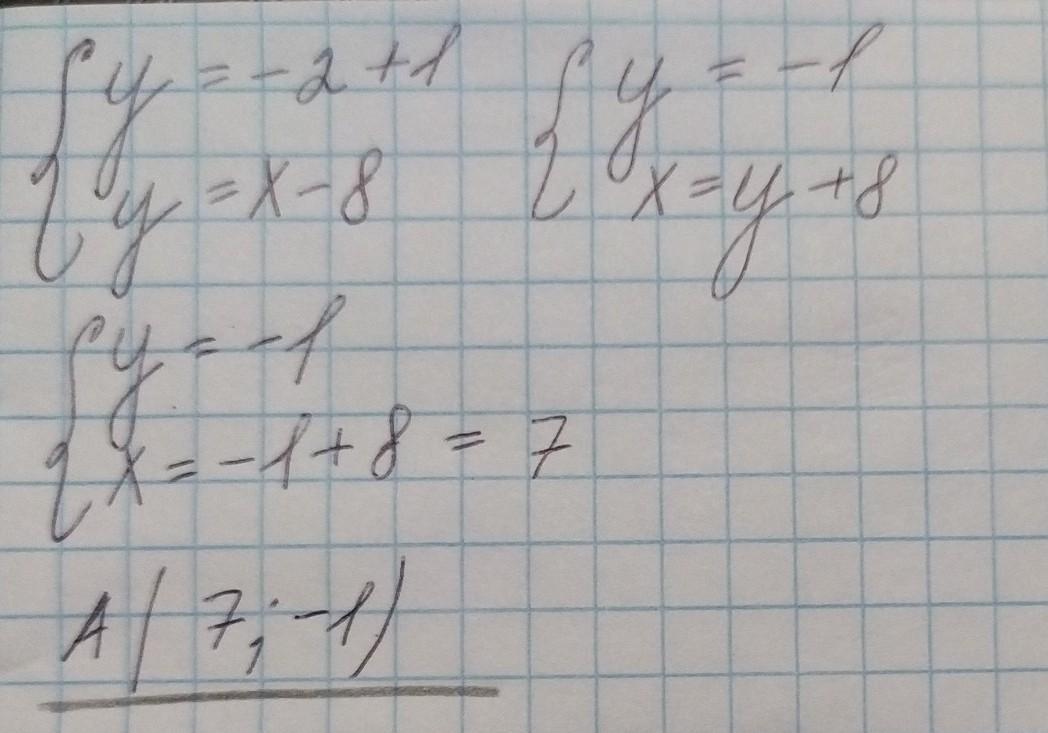 { y = -2 + 1 { y = -1
y = x - 8 x = y + 8
{ y = -1
x = -1 + 8 = 7
A ( 7; -1)